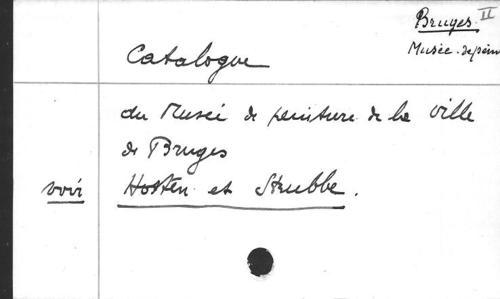 Bruges. II
Musée de pein
Catalogue
du Musée de peinture de la ville
de Bruges
voir Hosten et Strubbe.